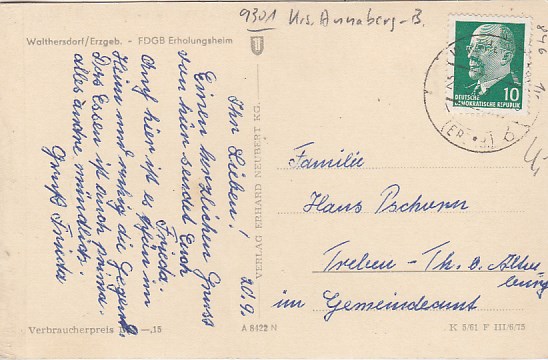 9301 Krs. Annaberg-B.
Walthersdorf/Erzgeb. - FDGB Erholungsheim
Ihr Lieben! 20.9.
Einen herzlichen Gruss
von hier sendet Euch
Frieda.
Auch hier ist es fein im
Heim und ruhig die Gegend.
Das Essen ist auch prima.
alles andre mündlich.
Gruß Frieda
VERLAG ERHARD NEUBERT KG.
10
DEUTSCHE
DEMOKRATISCHE REPUBLIK
Familie
Hans
Treben - Th. b. Alten-
burg
im Gemeindeamt
Verbraucherpreis -,15
A 8422 N
K 5/61 F III/6/75